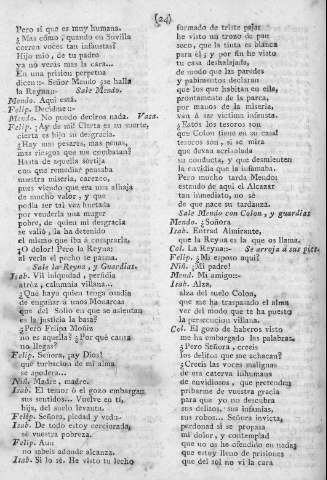 (24)
Pero si que es muy humana.
¿Mas cómo, quando en Sevilla
corren voces tan injustas?
Hijo mio, de tu padre
ya no veras mas la cara...
En una prision perpetua
dicen:- Señor Mendo ¿se halla
la Reyna:- Sale Mendo.
Mendo. Aqui está.
Felip. Decidme:-
Mendo. No puedo deciros nada. Vase.
Felip. ¡Ay de mi! Cierta es su muerte,
cierta es hijo su desgracia.
¿Hay mas pesares, mas penas,
mas riesgos que me combatan?
Hasta de aquella sortija
con que remediar pensaba
nuestra miseria, carezco,
pues viendo que era una alhaja
de mucho valor, y que
podia ser tal vez hurtada
por venderla una muger
pobre, de quien mi desgracia
se valió, la ha detenido
el mismo que iba á comprarla.
¡O dolor! Pero la Reyna:-
al verla el pecho se pasma.
Sale la Reyna, y Guardias.
Isab. Vil iniquidad, perfidia
atróz, calumnia villana...
¿Que haya quien tenga osadia
de engañar á unos Monarcas
que del Solio en que se asientan
es la justicia la basa?
¿Pero Felipa Moñiz
no es aquella? ¿Por qué causa
no llegas?
Felip. Señora, ¡ay Dios!
qué turbacion de mi alma
se apodera...
Niñ. Madre, madre.
Isab. El temor ó el gozo embargan
sus sentidos... Vuelve en tí,
hija, del suelo levanta.
Felip. Señora, piedad y vida.
Isab. De todo estoy cerciorada,
sé vuestra pobreza.
Felip. Aun
no sabeis adonde alcanza.
Isab. Si lo sé. He visto tu lecho
formado de triste paja:
he visto un trozo de pan
seco, que la tinta es blanca
para él; y por fin he visto
tu casa desbalajada,
de modo que las paredes
y pabimentos declaran
que los que habitan en ella,
prontamente de la parca,
por manos de la miseria,
van á ser victima infausta.
¿Estos los tesoros son
que Colon tiene en su casa?
tesoros son, si se mira
que llevan acrisolada
su conducta, y que desmienten
la envidia que la infamaba.
Pero mucho tarda Mendo,
estando de aqui el Alcazar
tan inmediato, no sé
de que nace su tardanza.
Sale Mendo con Colon, y guardias
Mendo. ¿Señora
Isab. Entrad Almirante,
que la Reyna es la que os llama.
Col. La Reyna:- Se arroja á sus pies.
Felip. ¿Mi esposo aqui?
Niñ. ¡Mi padre!
Mend. Mi amigo:-
Isab. Alza,
alza del suelo Colon,
que me ha traspasado el alma
ver del modo que te ha puesto
la persecucion villana.
Col. El gozo de haberos visto
me ha embargado las palabras.
¿Pero Señora, creeis
los delitos que me achacan?
¿Creeis las voces malignas
de esa caterva inhumana
de envidiosos, que pretenden
pribarme de vuestra gracia
para que yo no descubra
sus delitos, sus infamias,
sus robos... Señora invicta,
perdonad si se propasa
mi dolor, y contemplad
que yo os he ofendido en nada;
que estoy lleno de prisiones
que del sol no ví la cara